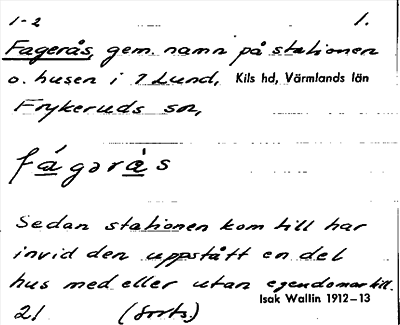 1-2 1.
Fagerås, gem. namn på stationen
o. husen i 7 Lund, Kils hd, Värmlands län
Frykeruds sn,
fágərås
Sedan stationen kom till har
invid den uppstått en del
hus med eller utan egendomar till.
Isak Wallin 1912-13
21 (forts.)